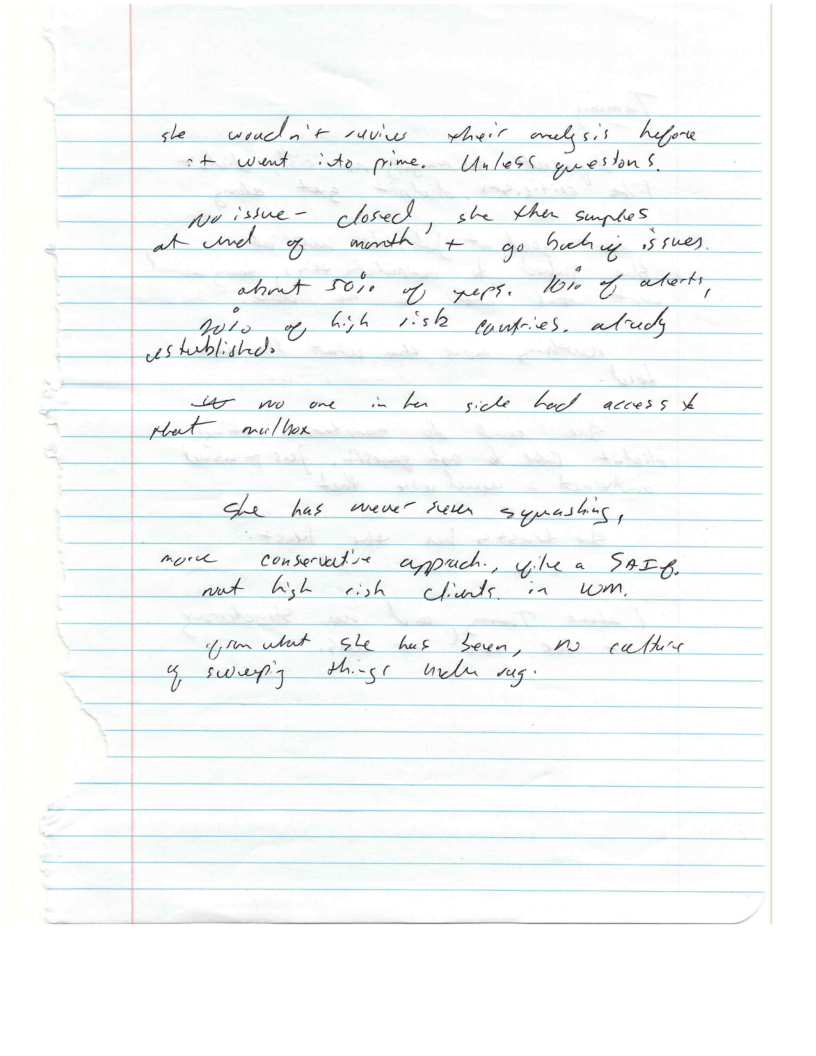 she wouldn't review their analysis before
it went into prime. Unless questions.
No issue - closed, she then samples
at end of month + go back if issues.
about 50% of peps. 10% of alerts,
20% of high risk countries. already
established.
no one in her side had access to
that mailbox
she has never seen squashing,
more conservative approach, file a SAR if.
not high risk clients in WM.
from what she has seen, no culture
of sweeping things under rug.